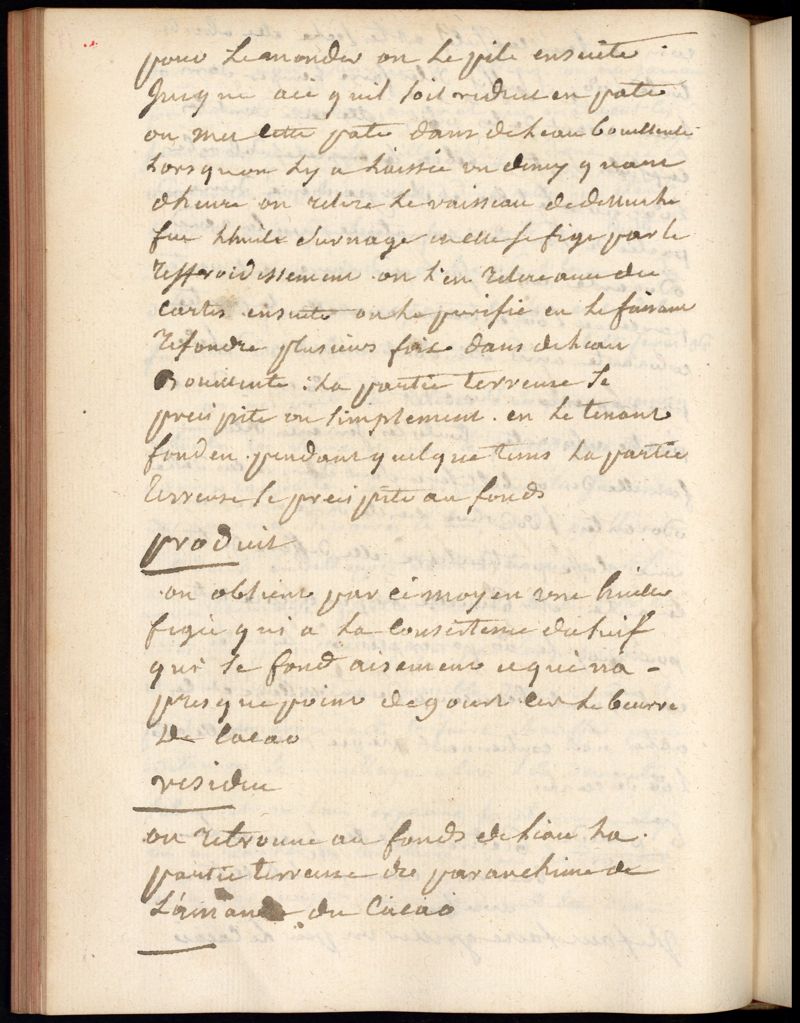 pour le monder on le pile ensuite
jusque ace quil soit reduit en pate
on met cette pate dans de leau bouillente
lorsquon ly a laissée un demy quart
dheure on retire le vaisseau de dessus le
feu lhuile surnage et elle se fige par le
reffroidissement on len retire avec des
cartes ensuite on la purifie en le faisant
refondre plusieurs fois dans de leau
Bouillente : la partie terreuse se
precipite ou simplement en le tenant
fonden pendant quelque tems la partie
terreuse se precipite au fonds
produit
on obtient par ce moyen une huille
figée qui a la consistense du suif
qui se fond aisement et qui na -
presque point de goust cest le beurre
De Cacao
residu
on retrouve au fonds de leau la
partie terreuse du paranchime de
L'amande du Cacao